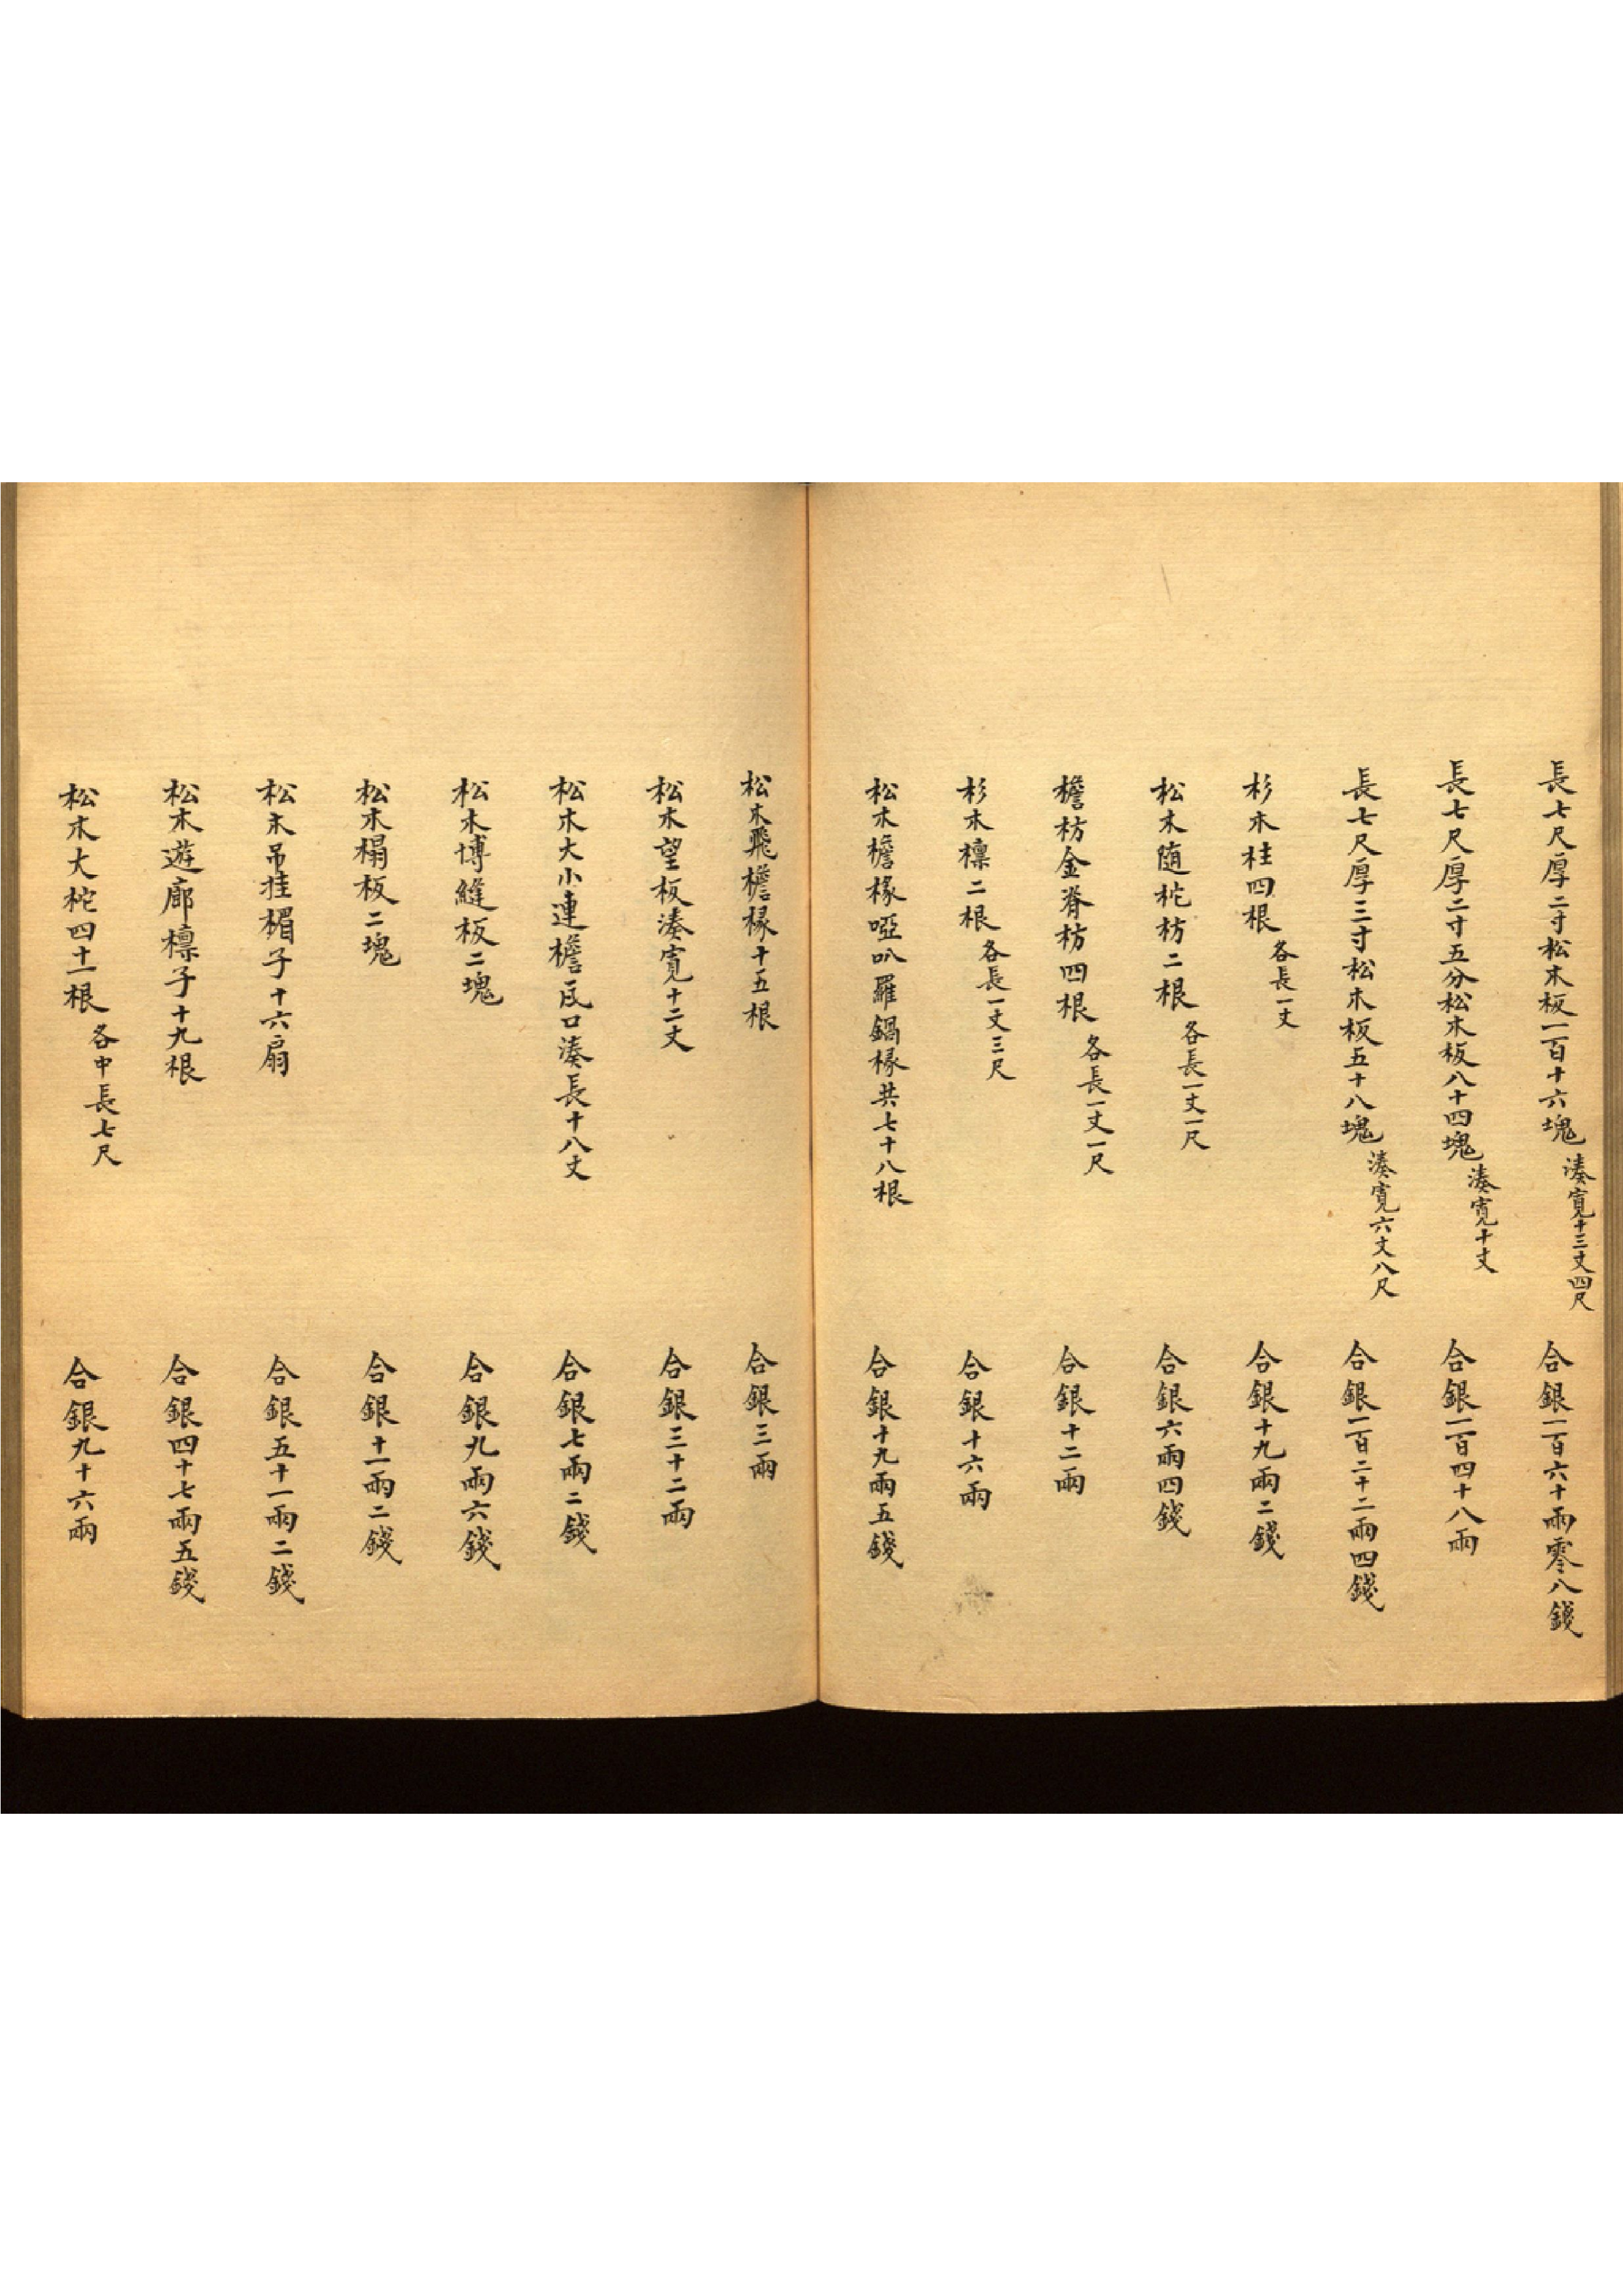 長七尺厚二寸松木板一百十六塊 湊寬十三丈四尺 合銀一百六十兩零八錢
長七尺厚二寸五分松木板八十四塊 湊寬十丈 合銀一百四十八兩
長七尺厚三寸松木板五十八塊 湊寬六丈八尺 合銀一百二十二兩四錢
杉木柱四根 各長一丈 合銀十九兩二錢
松木随柁枋二根 各長一丈一尺 合銀六兩四錢
檐枋金脊枋四根 各長一丈一尺 合銀十二兩
杉木檁二根 各長一丈三尺 合銀十六兩
松木檐椽啞叭羅鍋椽共七十八根 合銀十九兩五錢
松木飛檐椽十五根 合銀三兩
松木望板湊寬十二丈 合銀三十二兩
松木大小連檐瓦口湊長十八丈 合銀七兩二錢
松木博縫板二塊 合銀九兩六錢
松木榻板二塊 合銀十一兩二錢
松木吊挂楣子十六扇 合銀五十一兩二錢
松木遊廊檁子十九根 合銀四十七兩五錢
松木大柁四十一根 各中長七尺 合銀九十六兩